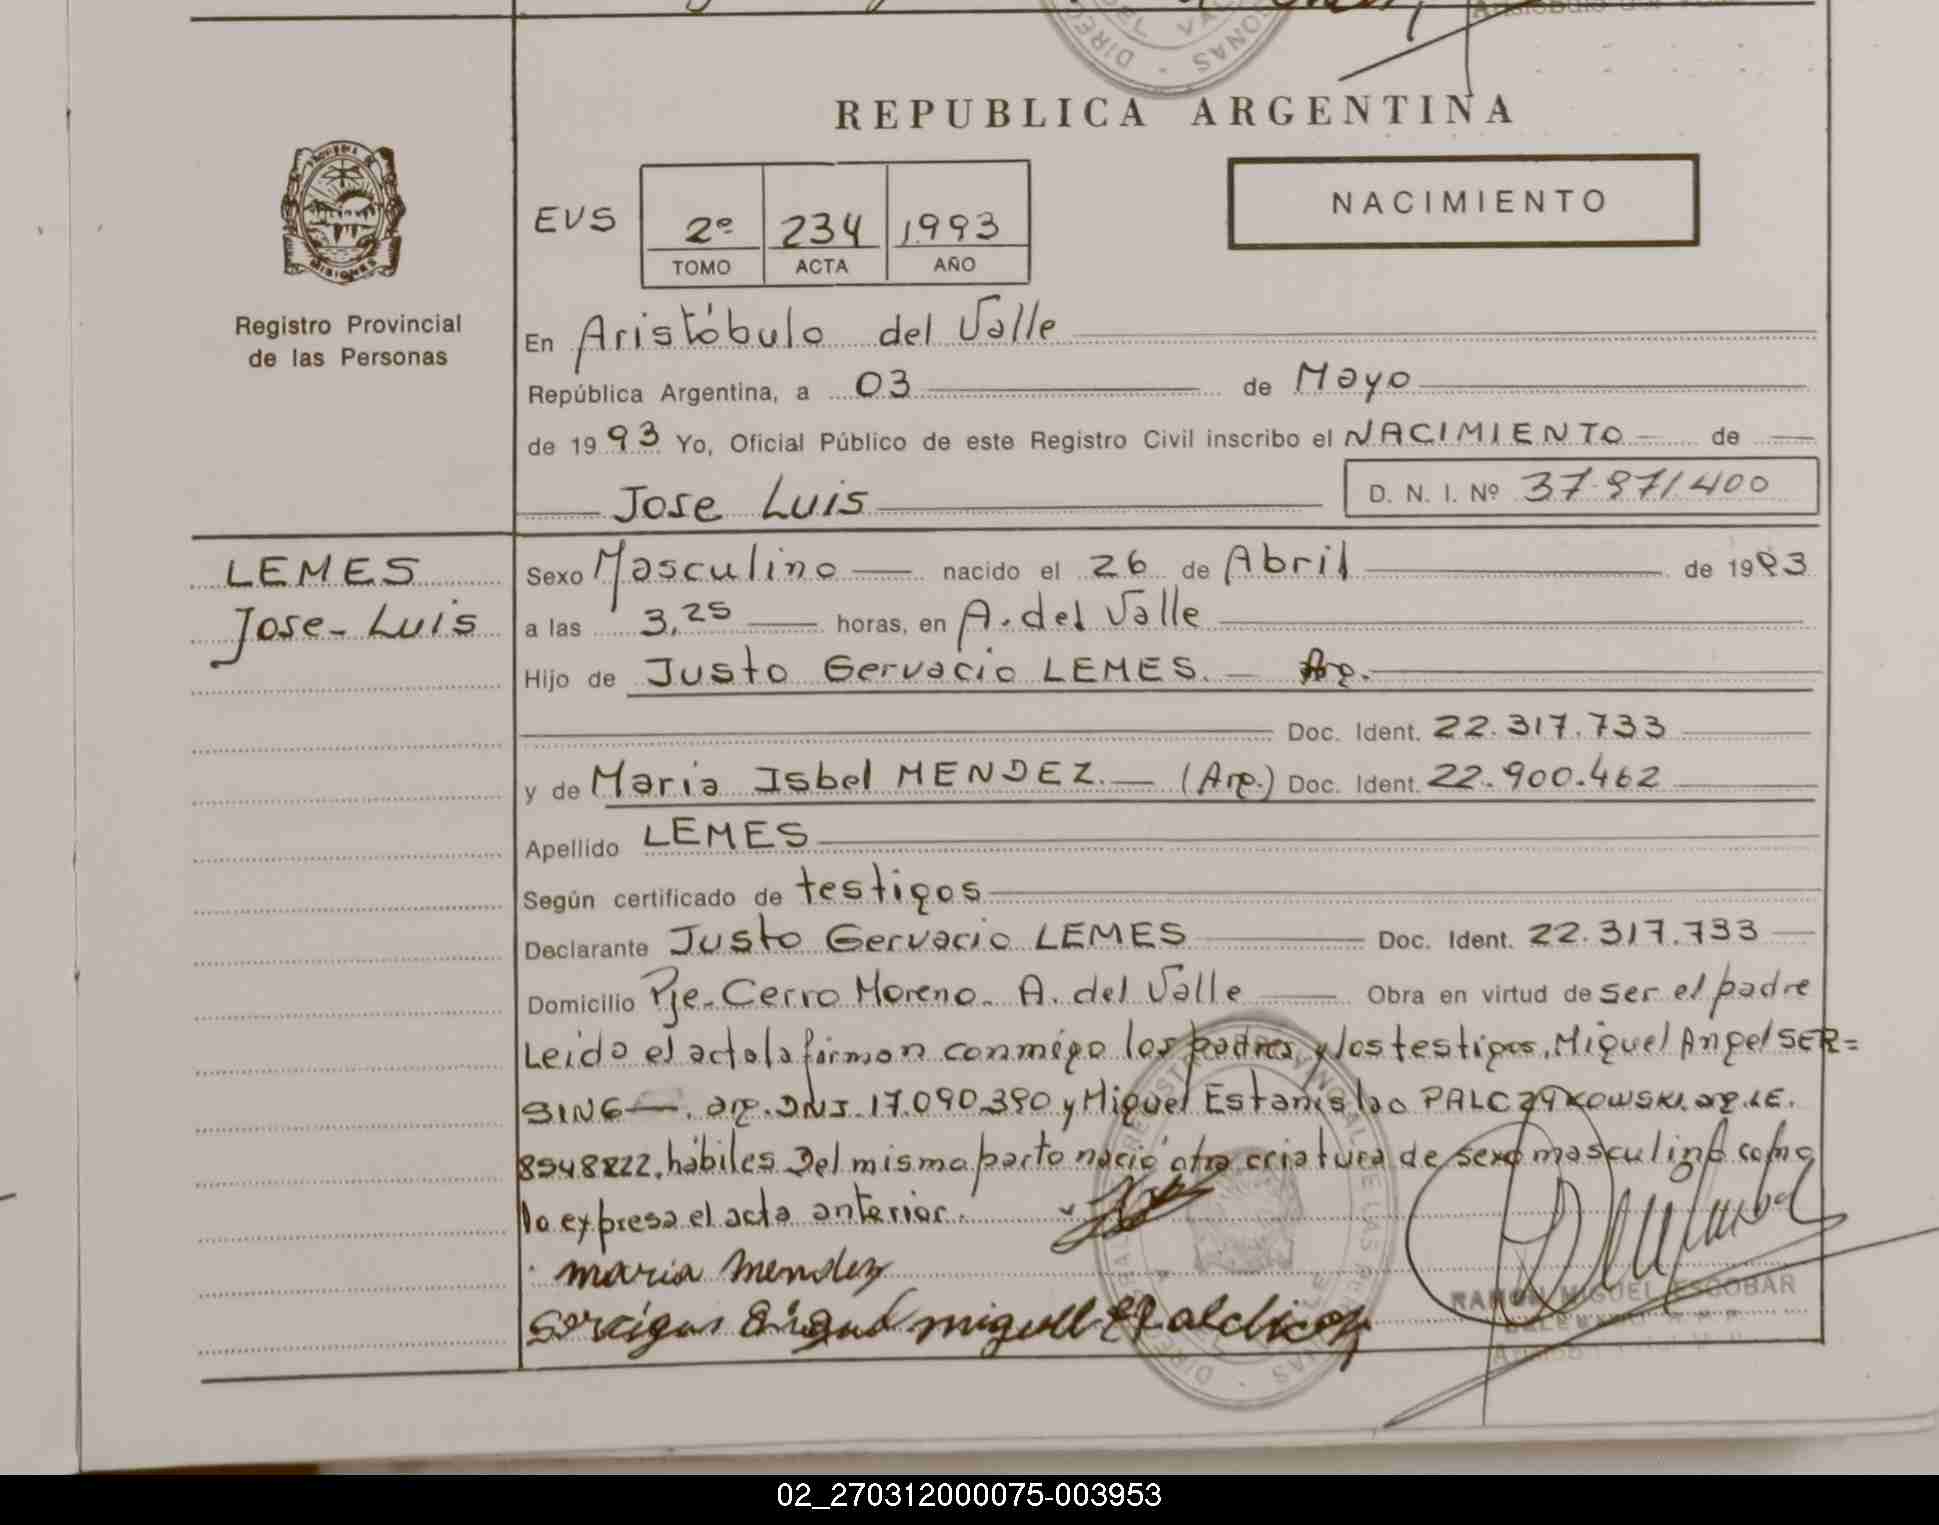 REPUBLICA ARGENTINA
NACIMIENTO
EVS 2º 234 1993
TOMO ACTA AÑO
MISIONES
Registro Provincial
de las Personas
En Aristóbulo del Valle
República Argentina, a 03 de Mayo
de 1993 Yo, Oficial Público de este Registro Civil inscribo el NACIMIENTO de
Jose Luis D. N. I. Nº 37.971.400
LEMES
Jose-Luis
Sexo Masculino nacido el 26 de Abril de 1993
a las 3,25 horas, en A. del Valle
Hijo de Justo Gervacio LEMES. Arg.
Doc. Ident. 22.317.733
y de Maria Isbel MENDEZ. (Arg.) Doc. Ident. 22.900.462
Apellido LEMES
Según certificado de testigos
Declarante Justo Gervacio LEMES Doc. Ident. 22.317.733
Domicilio Pje-Cerro Moreno- A. del Valle Obra en virtud de ser el padre
Leida el acta la firman conmigo los padres y los testigos, Miguel Angel SER=
SING. arg. DNI. 17.090.390 y Miguel Estanislao PALCZYKOWSKI. arg. LE.
8548222, hábiles Del mismo parto nació otra criatura de sexo masculino como
lo expresa el acta anterior.
maria Mendez
RAMON MIGUEL ESCOBAR
02_270312000075-003953